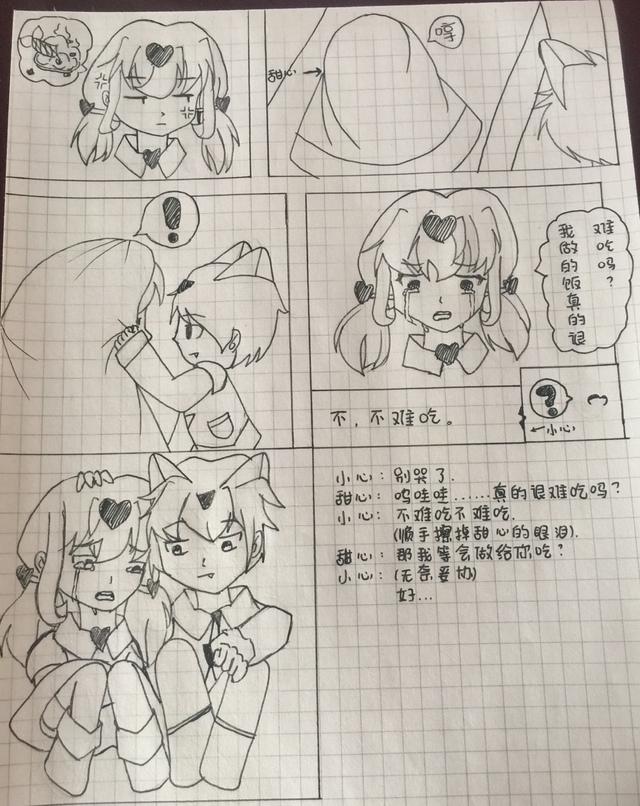 哼
甜心→
!
我做的饭真的很
难吃吗?
不,不难吃。
?
←小心
小心:别哭了.
甜心:呜哇哇......真的很难吃吗?
小心:不难吃不难吃.
(顺手擦掉甜心的眼泪).
甜心:那我等会做给你吃?
小心:(无奈妥协)
好...